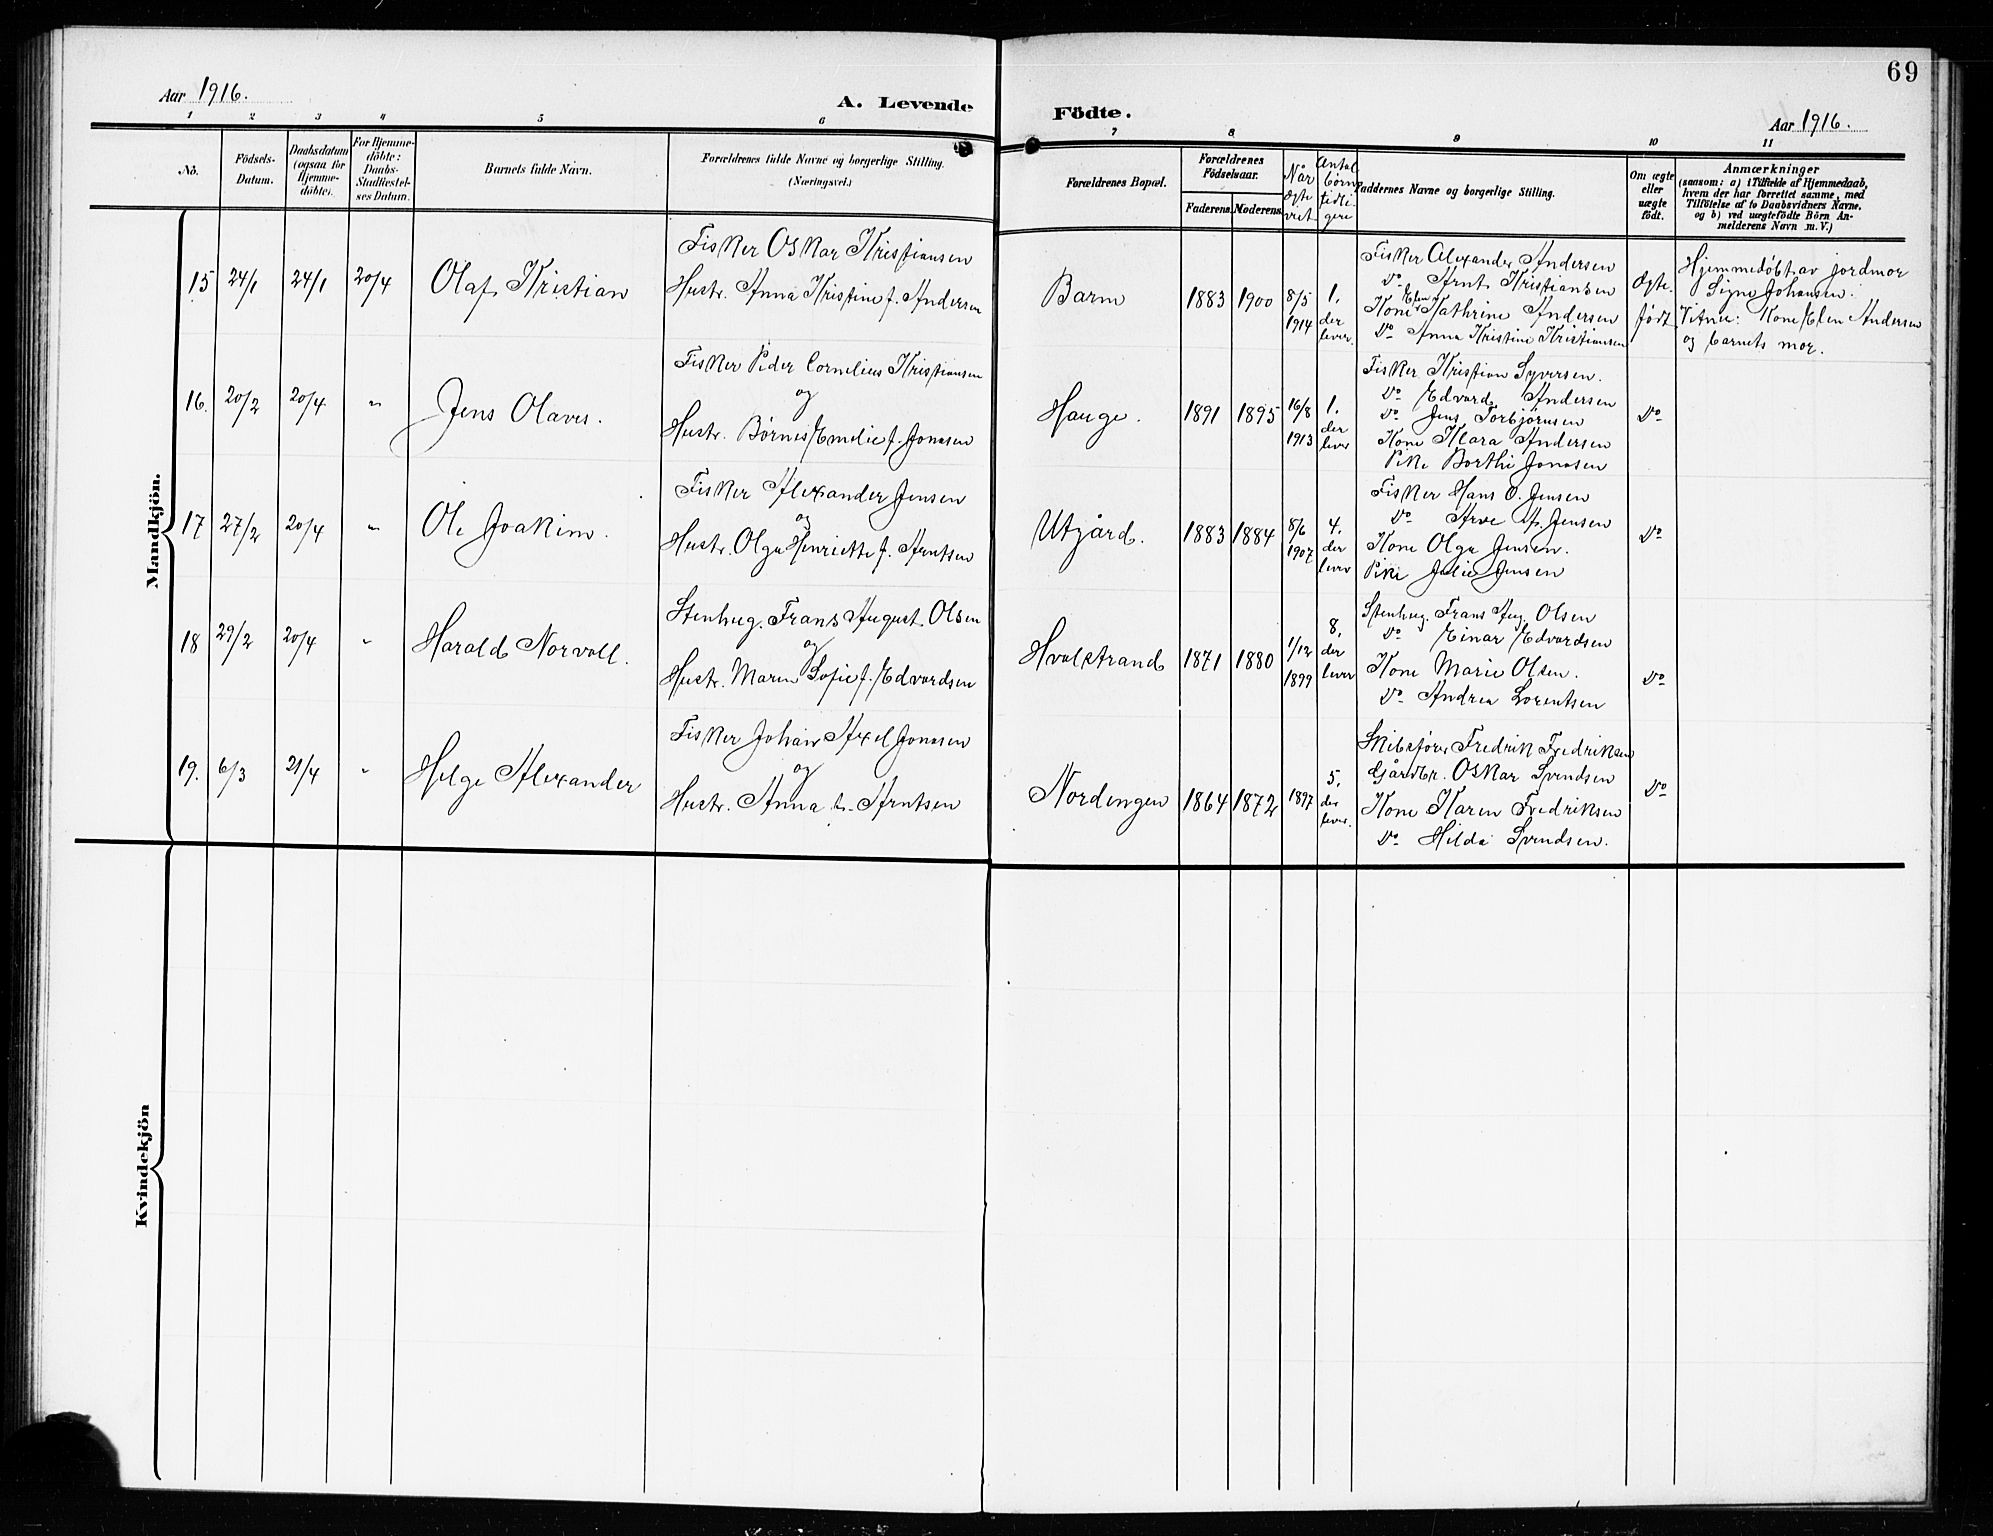 69
Aar 1916.
A. Levende
Födte.
Aar 1916.
1 2 3 4 5 6 7 8 9 10 11
No.
Födsels-
Datum.
Daabsdatum
(ogsaa for
Hjemme-
döbte).
For Hjemme-
döbte:
Daabs-
Stadfæstel-
ses Datum.
Barnets fulde Navn.
Forældrenes fulde Navne og borgerlige Stilling.
(Næringsvei.)
Forældrenes Bopæl.
Forældrenes
Födselsaar.
Faderens. Moderens.
Når
ægte
viet
Antal
børn
tidli-
gere
Faddernes Navne og borgerlige Stilling.
Om ægte
eller
uægte
födt.
Anmærkninger
(saasom: a) i Tilfælde af Hjemmedaab,
hvem der har forrettet samme, med
Tilföielse af to Daabsvidners Navne.
og b) ved uægtefödte Börn An-
melderens Navn m. V.)
Mandkjön.
15 24/1 24/1 20/4 Olaf Kristian
Fisker Oskar Kristiansen
Hustr. Anna Kristine f. Andersen
Barm 1883 1900 8/5
1914
1.
der
lever.
Fisker Alexander Andersen
Do Arnt Kristiansen
Kone Elen Kathrine Andersen
Do Anna Kristine Kristiansen
Ægte
født
Hjemmedøbt av jordmor
Signe Johansen.
Vitner: Kone Elen Andersen
og barnets mor.
16. 20/2 20/4 " Jens Olaves.
Fisker Peder Cornelius Kristiansen
og
Hustr. Børnes Emelie f. Jonasen
Hauge. 1891 1895 16/8
1913
1.
der
lever
Fisker Kristian Syversen.
Do Edvard Andersen
Do Jens Torbjørnsen
Kone Klara Andersen
Pike Borthi Jonasen
Do
17 27/2 20/4 " Ole Joakim.
Fisker Alexander Jensen
og
Hustr. Olga Henriette f. Arntsen
Utgård. 1883 1884 8/6
1907
4.
der
lever
Fisker Hans O. Jensen
Do Arve A. Jensen
Kone Olga Jensen.
Pike Julie Jensen
Do
18 29/2 20/4 " Harald Norvall.
Stenhug. Frans August Olsen
og
Hustr. Maren Sofie f. Edvardsen
Hvalstrand 1871 1880 1/12
1899
8.
der
lever
Stenhug. Frans Aug. Olsen
Do Einar Edvardsen
Kone Marie Olsen.
Do Andrea Lorentsen
Do
19. 6/3 21/4 " Helge Alexander
Fisker Johan Axel Jonasen
og
Hustr. Anna f. Arntsen
Nordengen 1864 1872 1897
5.
der
lever.
Skibsfører Fredrik Fredriksen
Gårdbr. Oskar Svendsen
Kone Karen Fredriksen
Do Hilda Svendsen.
Do
Kvindekjön